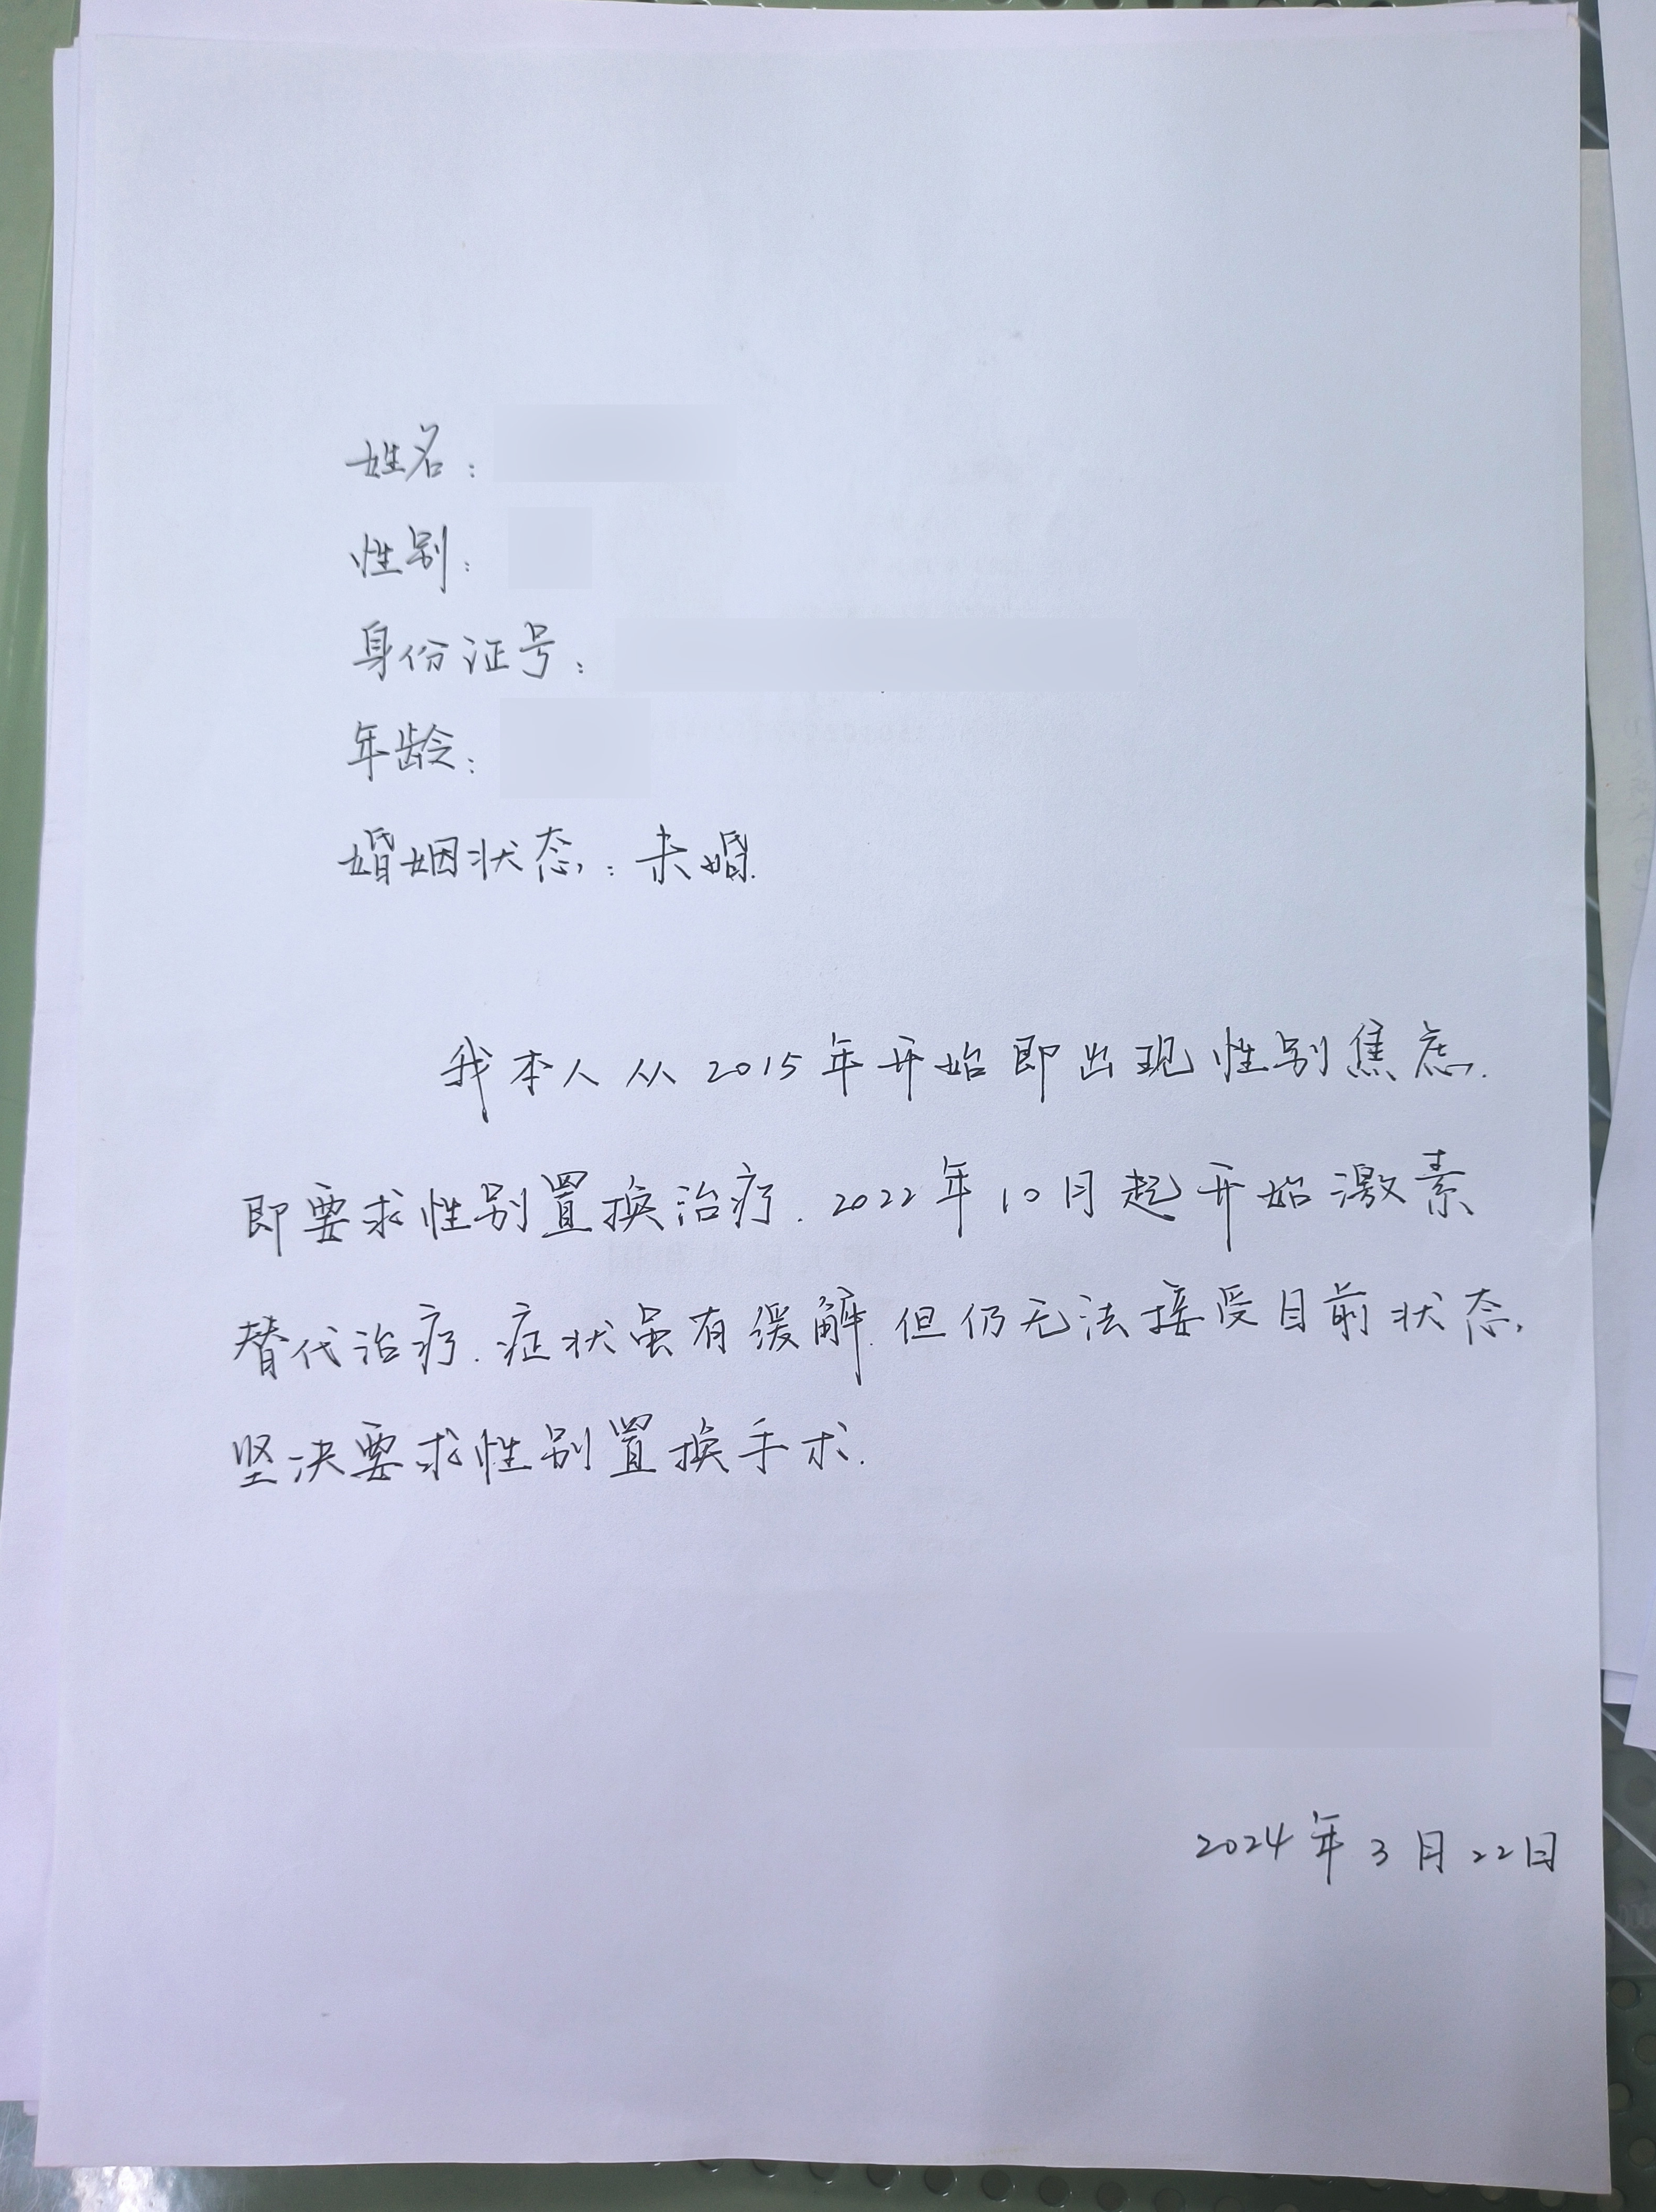 姓名：
性别：
身份证号：
年龄：
婚姻状态：未婚.
我本人从2015年开始即出现性别焦虑.
即要求性别置换治疗.2022年10月起开始激素
替代治疗.症状虽有缓解.但仍无法接受目前状态,
坚决要求性别置换手术.
2024年3月22日